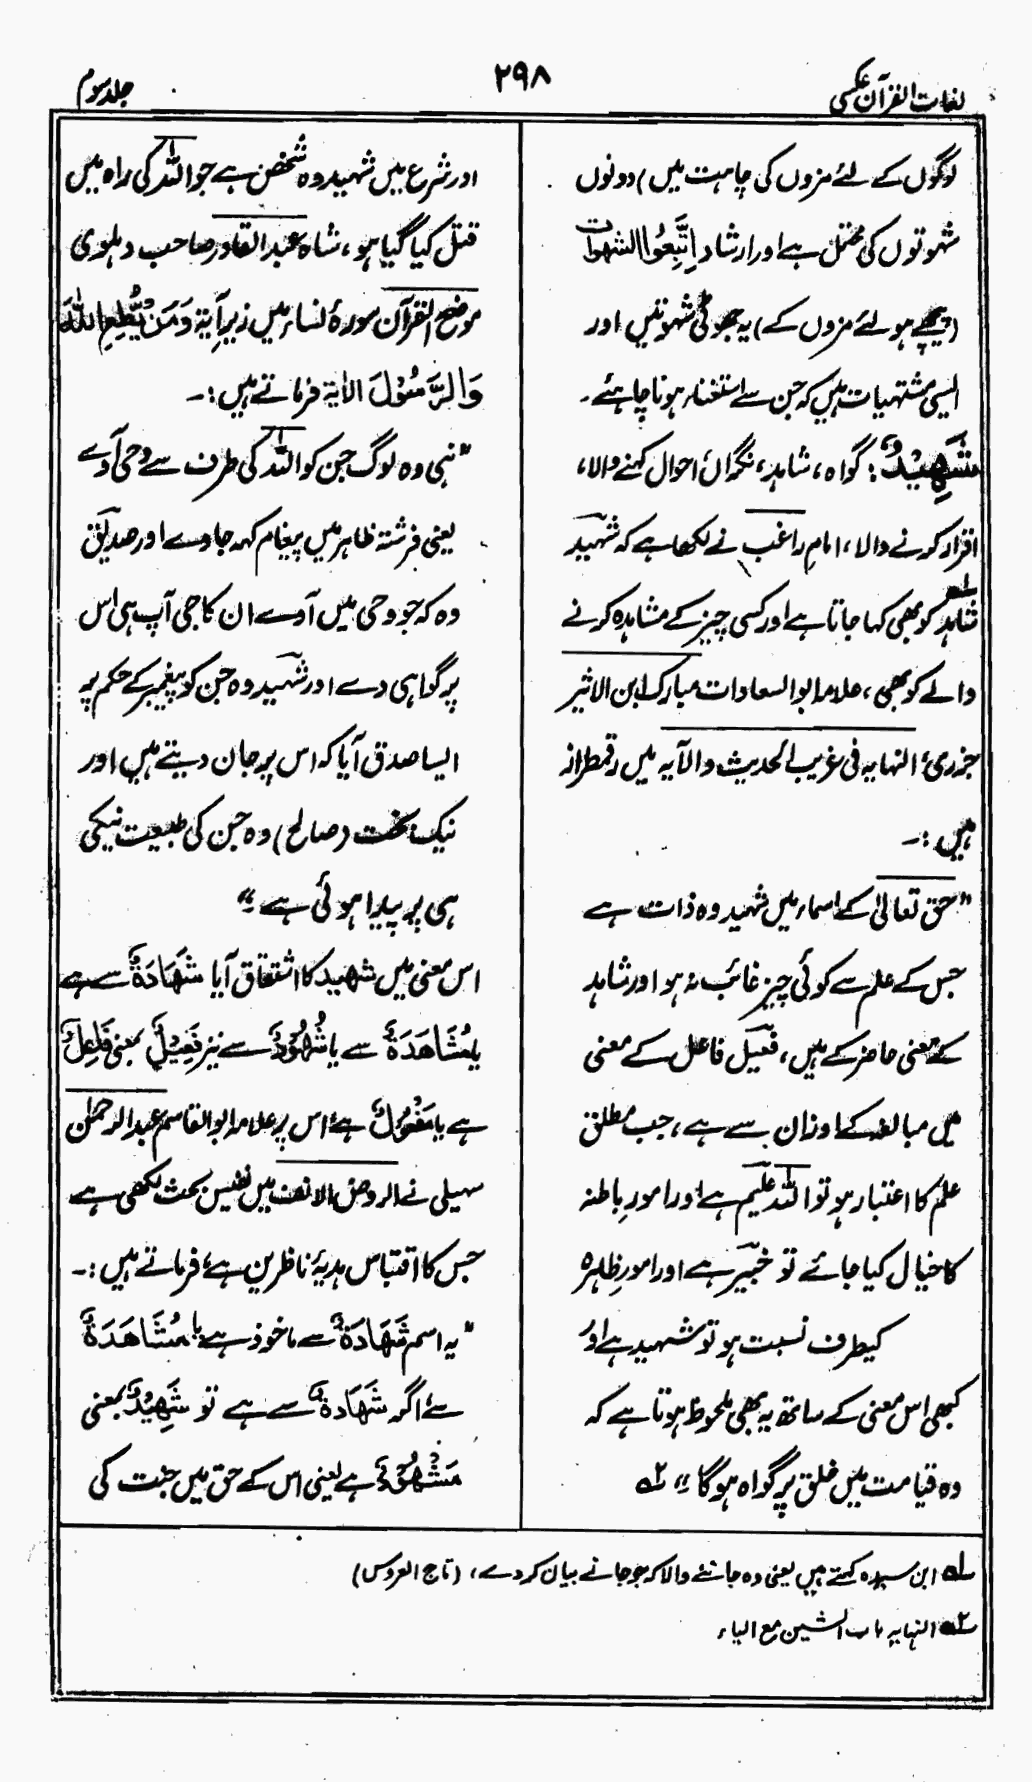 لغات القرآن عکسی
۲۹۸
جلد سوم
لوگوں کے لئے مزوں کی چاہت میں) دونوں
شہوتوں کی محتمل ہے اور ارشاد اِتَّبِعُوا الشہوات
(پیچھے ہو لئے مزوں کے) یہ جھوٹی شہوتیں اور
ایسی مشتہیات ہیں کہ جن سے استغناء ہونا چاہئے۔
شَہِیْدٌ: گواہ، شاہد، نگراں، احوال کہنے والا،
اقرار کرنے والا، امام راغب نے لکھا ہے کہ شہید
شاہد کو بھی کہا جاتا ہے اور کسی چیز کے مشاہدہ کرنے
والے کو بھی، علامہ ابو السعادات مبارک ابن الاثیر
جزری، النہایہ فی غریب الحدیث والآیہ میں رقمطراز
ہیں:۔
"حق تعالیٰ کے اسماء میں شہید وہ ذات ہے
جس کے علم سے کوئی چیز غائب نہ ہو اور شاہد
کے معنی حاضر کے ہیں، فعیل فاعل کے معنی
میں مبالغہ کے اوزان سے ہے، جب مطلق
علم کا اعتبار ہو تو اللہ علیم ہے اور امورِ باطنہ
کا خیال کیا جائے تو خبیر ہے اور امورِ ظاہرہ
کیطرف نسبت ہو تو شہید ہے اور
کبھی اس معنی کے ساتھ یہ بھی ملحوظ ہوتا ہے کہ
وہ قیامت میں خلق پر گواہ ہوگا" ۲ے
اور شرع میں شہید وہ شخص ہے جو اللہ کی راہ میں
قتل کیا گیا ہو، شاہ عبد القادر صاحب دہلوی
موضح القرآن سورۂ نساء میں زیر آیۃ وَمَنْ یُّطِعِ اللہَ
وَالرَّسُوْلَ الاٰیۃ فرماتے ہیں:۔
"نبی وہ لوگ جن کو اللہ کی طرف سے وحی آوے
یعنی فرشتہ ظاہر میں پیغام کہہ جاوے اور صدیق
وہ کہ جو وحی میں آوے ان کا جی آپ ہی اس
پر گواہی دے اور شہید وہ جن کو پیغمبر کے حکم پر
ایسا صدق آیا کہ اس پر جان دیتے ہیں اور
نیک بخت (صالح) وہ جن کی طبیعت نیکی
ہی پر پیدا ہوئی ہے"
اس معنی میں شہید کا اشتقاق آیا شَهَادَةٌ سے ہے
یا مُشَاهَدَةٌ سے یا شُهُوْدٌ سے نیز فَعِیْلٌ بمعنی فَاعِلٌ
ہے یا مَفْعُوْلٌ ہے، اس پر علامہ ابو القاسم عبد الرحمٰن
سہیلی نے الروض الانف میں نفیس بحث لکھی ہے
جس کا اقتباس ہدیۂ ناظرین ہے، فرماتے ہیں:۔
"یہ اسم شَهَادَةٌ سے ماخوذ ہے یا مُشَاهَدَةٌ
سے، اگر شَهَادَةٌ سے ہے تو شَهِیْدٌ بمعنی
مَشْهُوْدٌ ہے یعنی اس کے حق میں جنت کی
۱ے ابن سیدہ کہتے ہیں یعنی وہ جاننے والا کہ جو جانے بیان کر دے، (تاج العروس)
۲ے النہایہ باب الشین مع الیاء